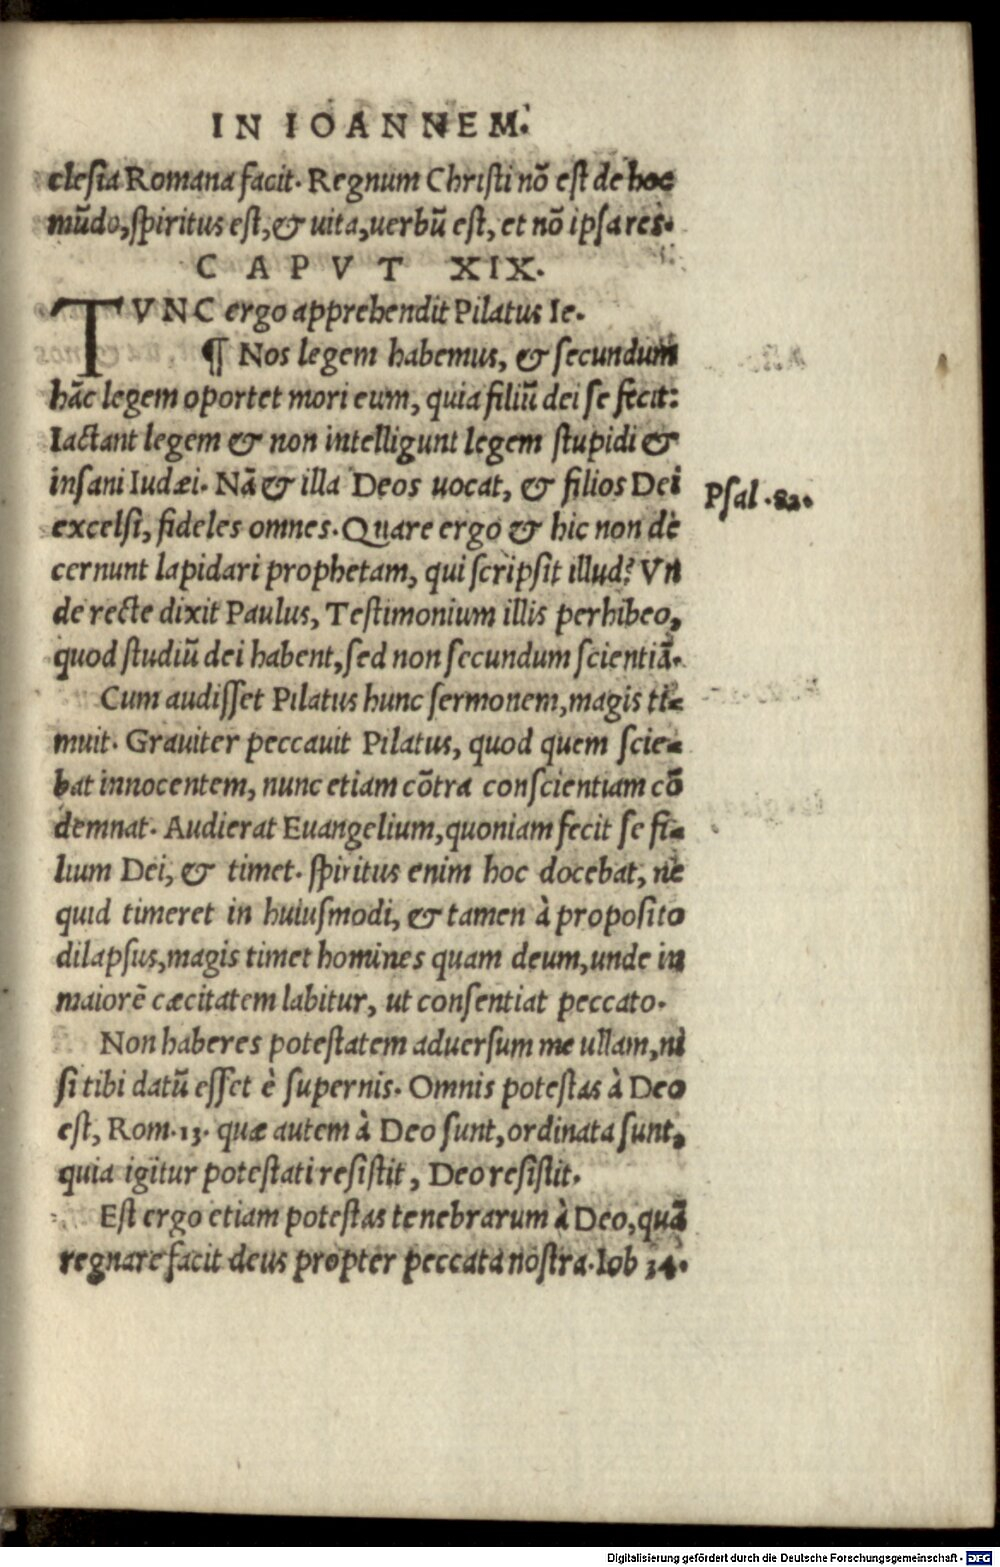 IN IOANNEM.
clesia Romana facit. Regnum Christi nõ est de hoc
mũdo, spiritus est, & uita, uerbũ est, et nõ ipsa res.
CAPVT XIX.
TVNC ergo apprehendit Pilatus Ie.
¶ Nos legem habemus, & secundum
hãc legem oportet mori eum, quia filiũ dei se fecit:
Iactant legem & non intelligunt legem stupidi &
insani Iudæi. Nã & illa Deos uocat, & filios Dei
Psal. 82.
excelsi, fideles omnes. Quare ergo & hic non de
cernunt lapidari prophetam, qui scripsit illud? Vn
de recte dixit Paulus, Testimonium illis perhibeo,
quod studiũ dei habent, sed non secundum scientiã.
Cum audisset Pilatus hunc sermonem, magis ti=
muit. Grauiter peccauit Pilatus, quod quem scie=
bat innocentem, nunc etiam cõtra conscientiam cõ
demnat. Audierat Euangelium, quoniam fecit se fi=
lium Dei, & timet. spiritus enim hoc docebat, ne
quid timeret in huiusmodi, & tamen à proposito
dilapsus, magis timet homines quam deum, unde in
maiorẽ cæcitatem labitur, ut consentiat peccato.
Non haberes potestatem aduersum me ullam, ni
si tibi datũ esset è supernis. Omnis potestas à Deo
est, Rom. 13. quæ autem à Deo sunt, ordinata sunt,
quia igitur potestati resistit, Deo resistit.
Est ergo etiam potestas tenebrarum à Deo, quã
regnare facit deus propter peccata nostra. Iob 34.
Digitalisierung gefördert durch die Deutsche Forschungsgemeinschaft - DFG